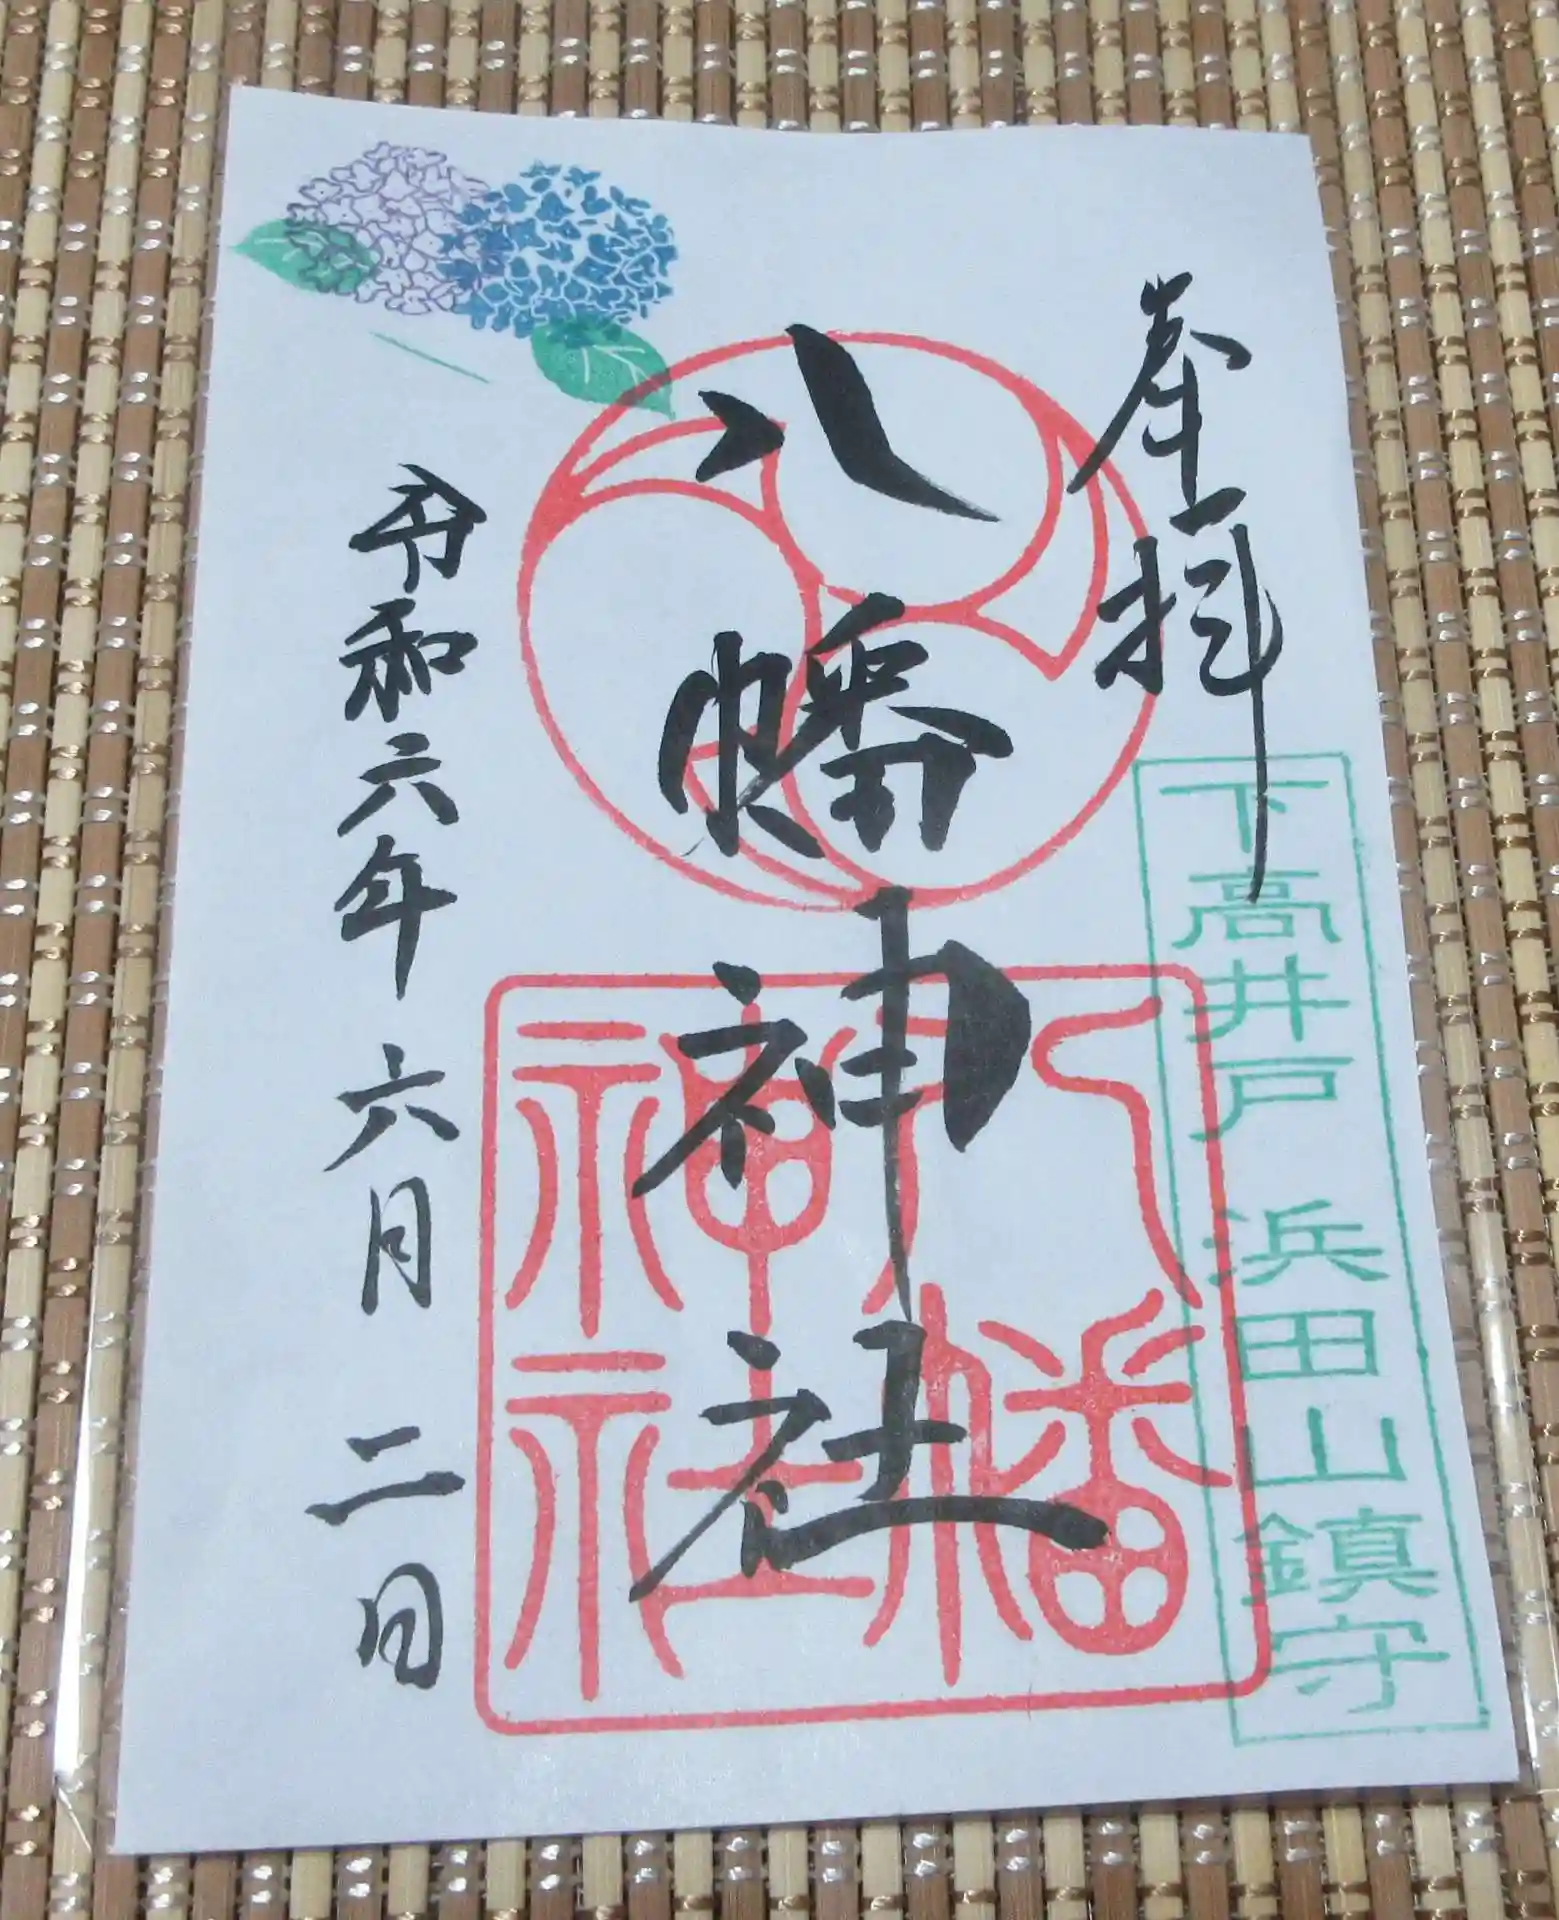 奉拝
下高井戸 浜田山鎮守
八幡神社
八幡神社
令和六年 六月 二日